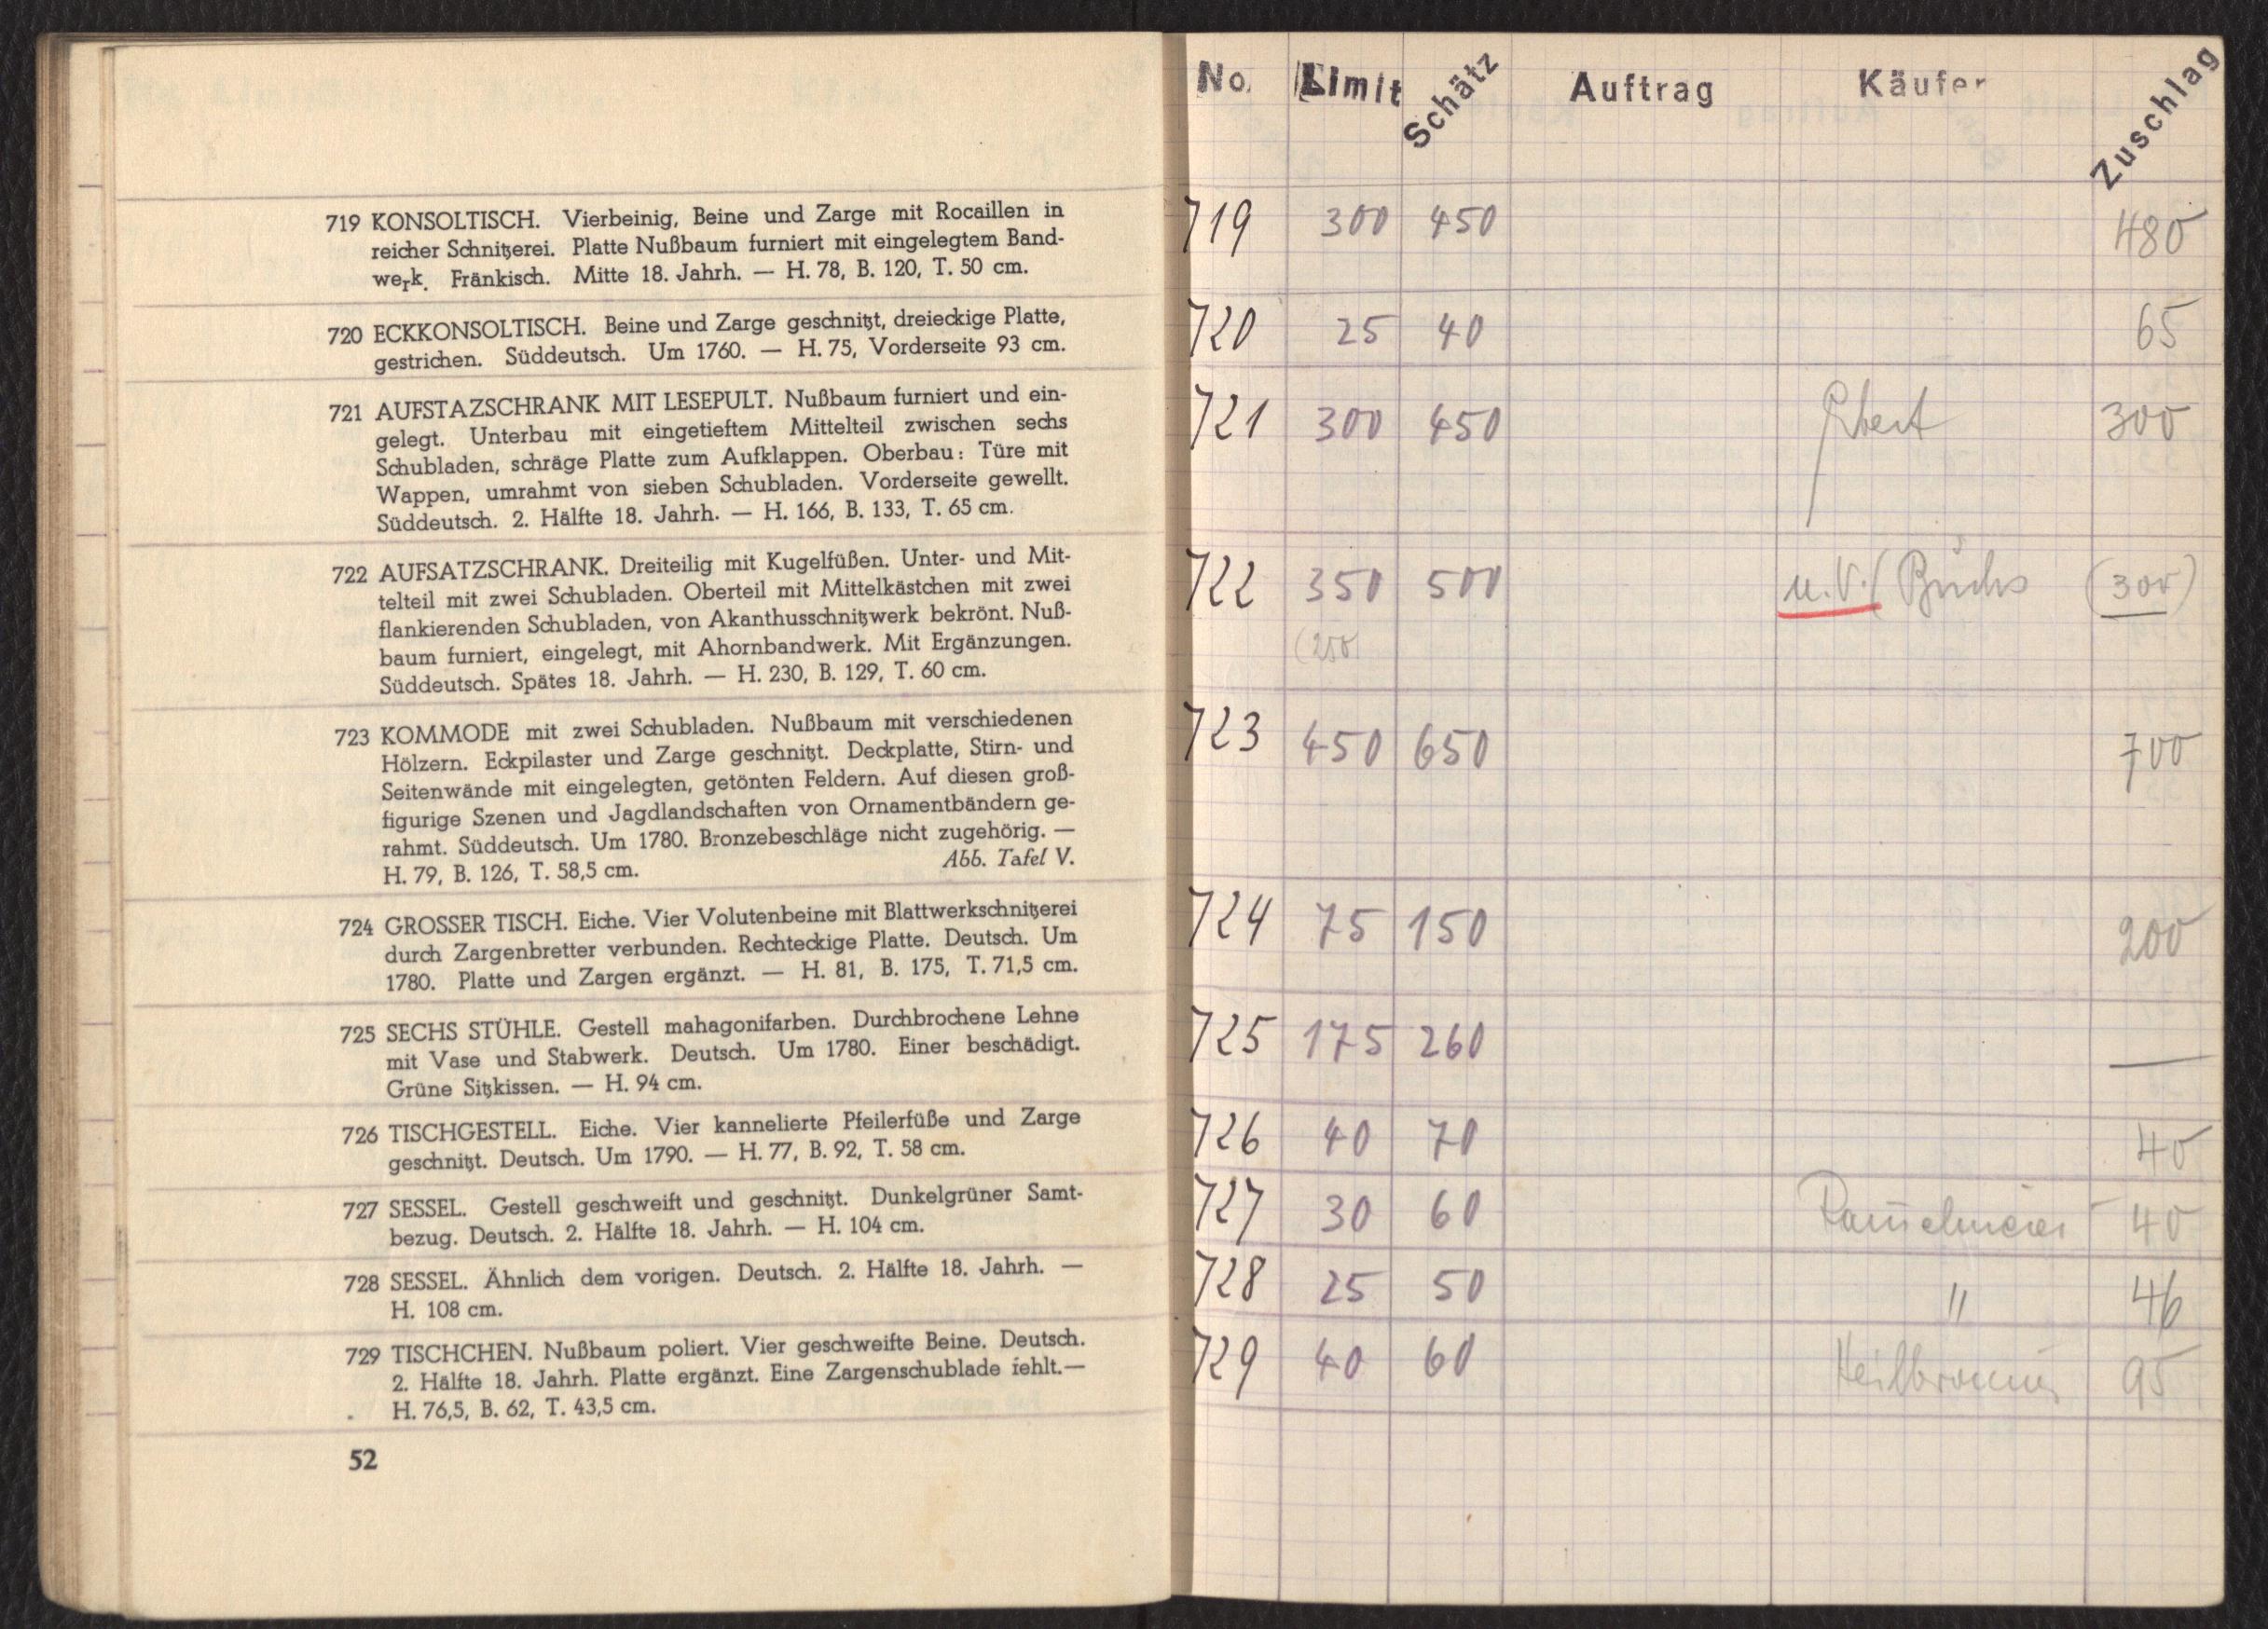 719 KONSOLTISCH. Vierbeinig, Beine und Zarge mit Rocaillen in
reicher Schnitzerei. Platte Nußbaum furniert mit eingelegtem Band-
werk. Fränkisch. Mitte 18. Jahrh. — H. 78, B. 120, T. 50 cm.
720 ECKKONSOLTISCH. Beine und Zarge geschnitzt, dreieckige Platte,
gestrichen. Süddeutsch. Um 1760. — H. 75, Vorderseite 93 cm.
721 AUFSTAZSCHRANK MIT LESEPULT. Nußbaum furniert und ein-
gelegt. Unterbau mit eingetieftem Mittelteil zwischen sechs
Schubladen, schräge Platte zum Aufklappen. Oberbau: Türe mit
Wappen, umrahmt von sieben Schubladen. Vorderseite gewellt.
Süddeutsch. 2. Hälfte 18. Jahrh. — H. 166, B. 133, T. 65 cm.
722 AUFSATZSCHRANK. Dreiteilig mit Kugelfüßen. Unter- und Mit-
telteil mit zwei Schubladen. Oberteil mit Mittelkästchen mit zwei
flankierenden Schubladen, von Akanthusschnitzwerk bekrönt. Nuß-
baum furniert, eingelegt, mit Ahornbandwerk. Mit Ergänzungen.
Süddeutsch. Spätes 18. Jahrh. — H. 230, B. 129, T. 60 cm.
723 KOMMODE mit zwei Schubladen. Nußbaum mit verschiedenen
Hölzern. Eckpilaster und Zarge geschnitzt. Deckplatte, Stirn- und
Seitenwände mit eingelegten, getönten Feldern. Auf diesen groß-
figurige Szenen und Jagdlandschaften von Ornamentbändern ge-
rahmt. Süddeutsch. Um 1780. Bronzebeschläge nicht zugehörig. —
H. 79, B. 126, T. 58,5 cm. Abb. Tafel V.
724 GROSSER TISCH. Eiche. Vier Volutenbeine mit Blattwerkschnitzerei
durch Zargenbretter verbunden. Rechteckige Platte. Deutsch. Um
1780. Platte und Zargen ergänzt. — H. 81, B. 175, T. 71,5 cm.
725 SECHS STÜHLE. Gestell mahagonifarben. Durchbrochene Lehne
mit Vase und Stabwerk. Deutsch. Um 1780. Einer beschädigt.
Grüne Sitzkissen. — H. 94 cm.
726 TISCHGESTELL. Eiche. Vier kannelierte Pfeilerfüße und Zarge
geschnitzt. Deutsch. Um 1790. — H. 77, B. 92, T. 58 cm.
727 SESSEL. Gestell geschweift und geschnitzt. Dunkelgrüner Samt-
bezug. Deutsch. 2. Hälfte 18. Jahrh. — H. 104 cm.
728 SESSEL. Ähnlich dem vorigen. Deutsch. 2. Hälfte 18. Jahrh. —
H. 108 cm.
729 TISCHCHEN. Nußbaum poliert. Vier geschweifte Beine. Deutsch.
2. Hälfte 18. Jahrh. Platte ergänzt. Eine Zargenschublade fehlt.—
H. 76,5, B. 62, T. 43,5 cm.
52
No. Limit Schätz Auftrag Käufer Zuschlag
719 300 450 480
720 25 40 65
721 300 450 300
722 350 500 u.V. (300)
(250)
723 450 650 700
724 75 150 200
725 175 260 —
726 40 70 40
727 30 60 40
728 25 50 " 46
729 40 60 95